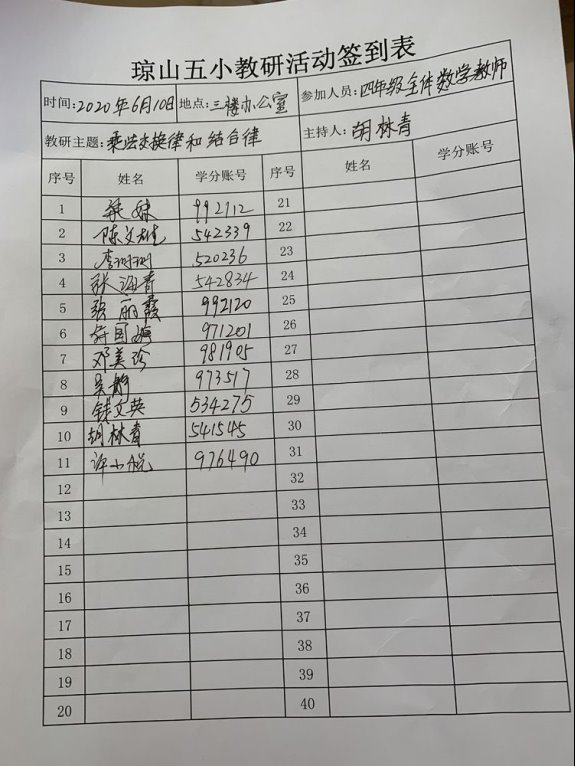 琼山五小教研活动签到表
时间:2020年6月10日 地点:三楼办公室 参加人员:四年级全体数学教师
教研主题:乘法交换律和结合律 主持人:胡林青
序号 姓名 学分账号 序号 姓名 学分账号
1 梁妹 992712 21
2 陈文雄 542339 22
3 520236 23
4 张海青 542834 24
5 张丽霞 992120 25
6 971201 26
7 邓美珍 981905 27
8 973517 28
9 钱文英 534275 29
10 胡林青 541545 30
11 976490 31
12 32
13 33
14 34
15 35
16 36
17 37
18 38
19 39
20 40